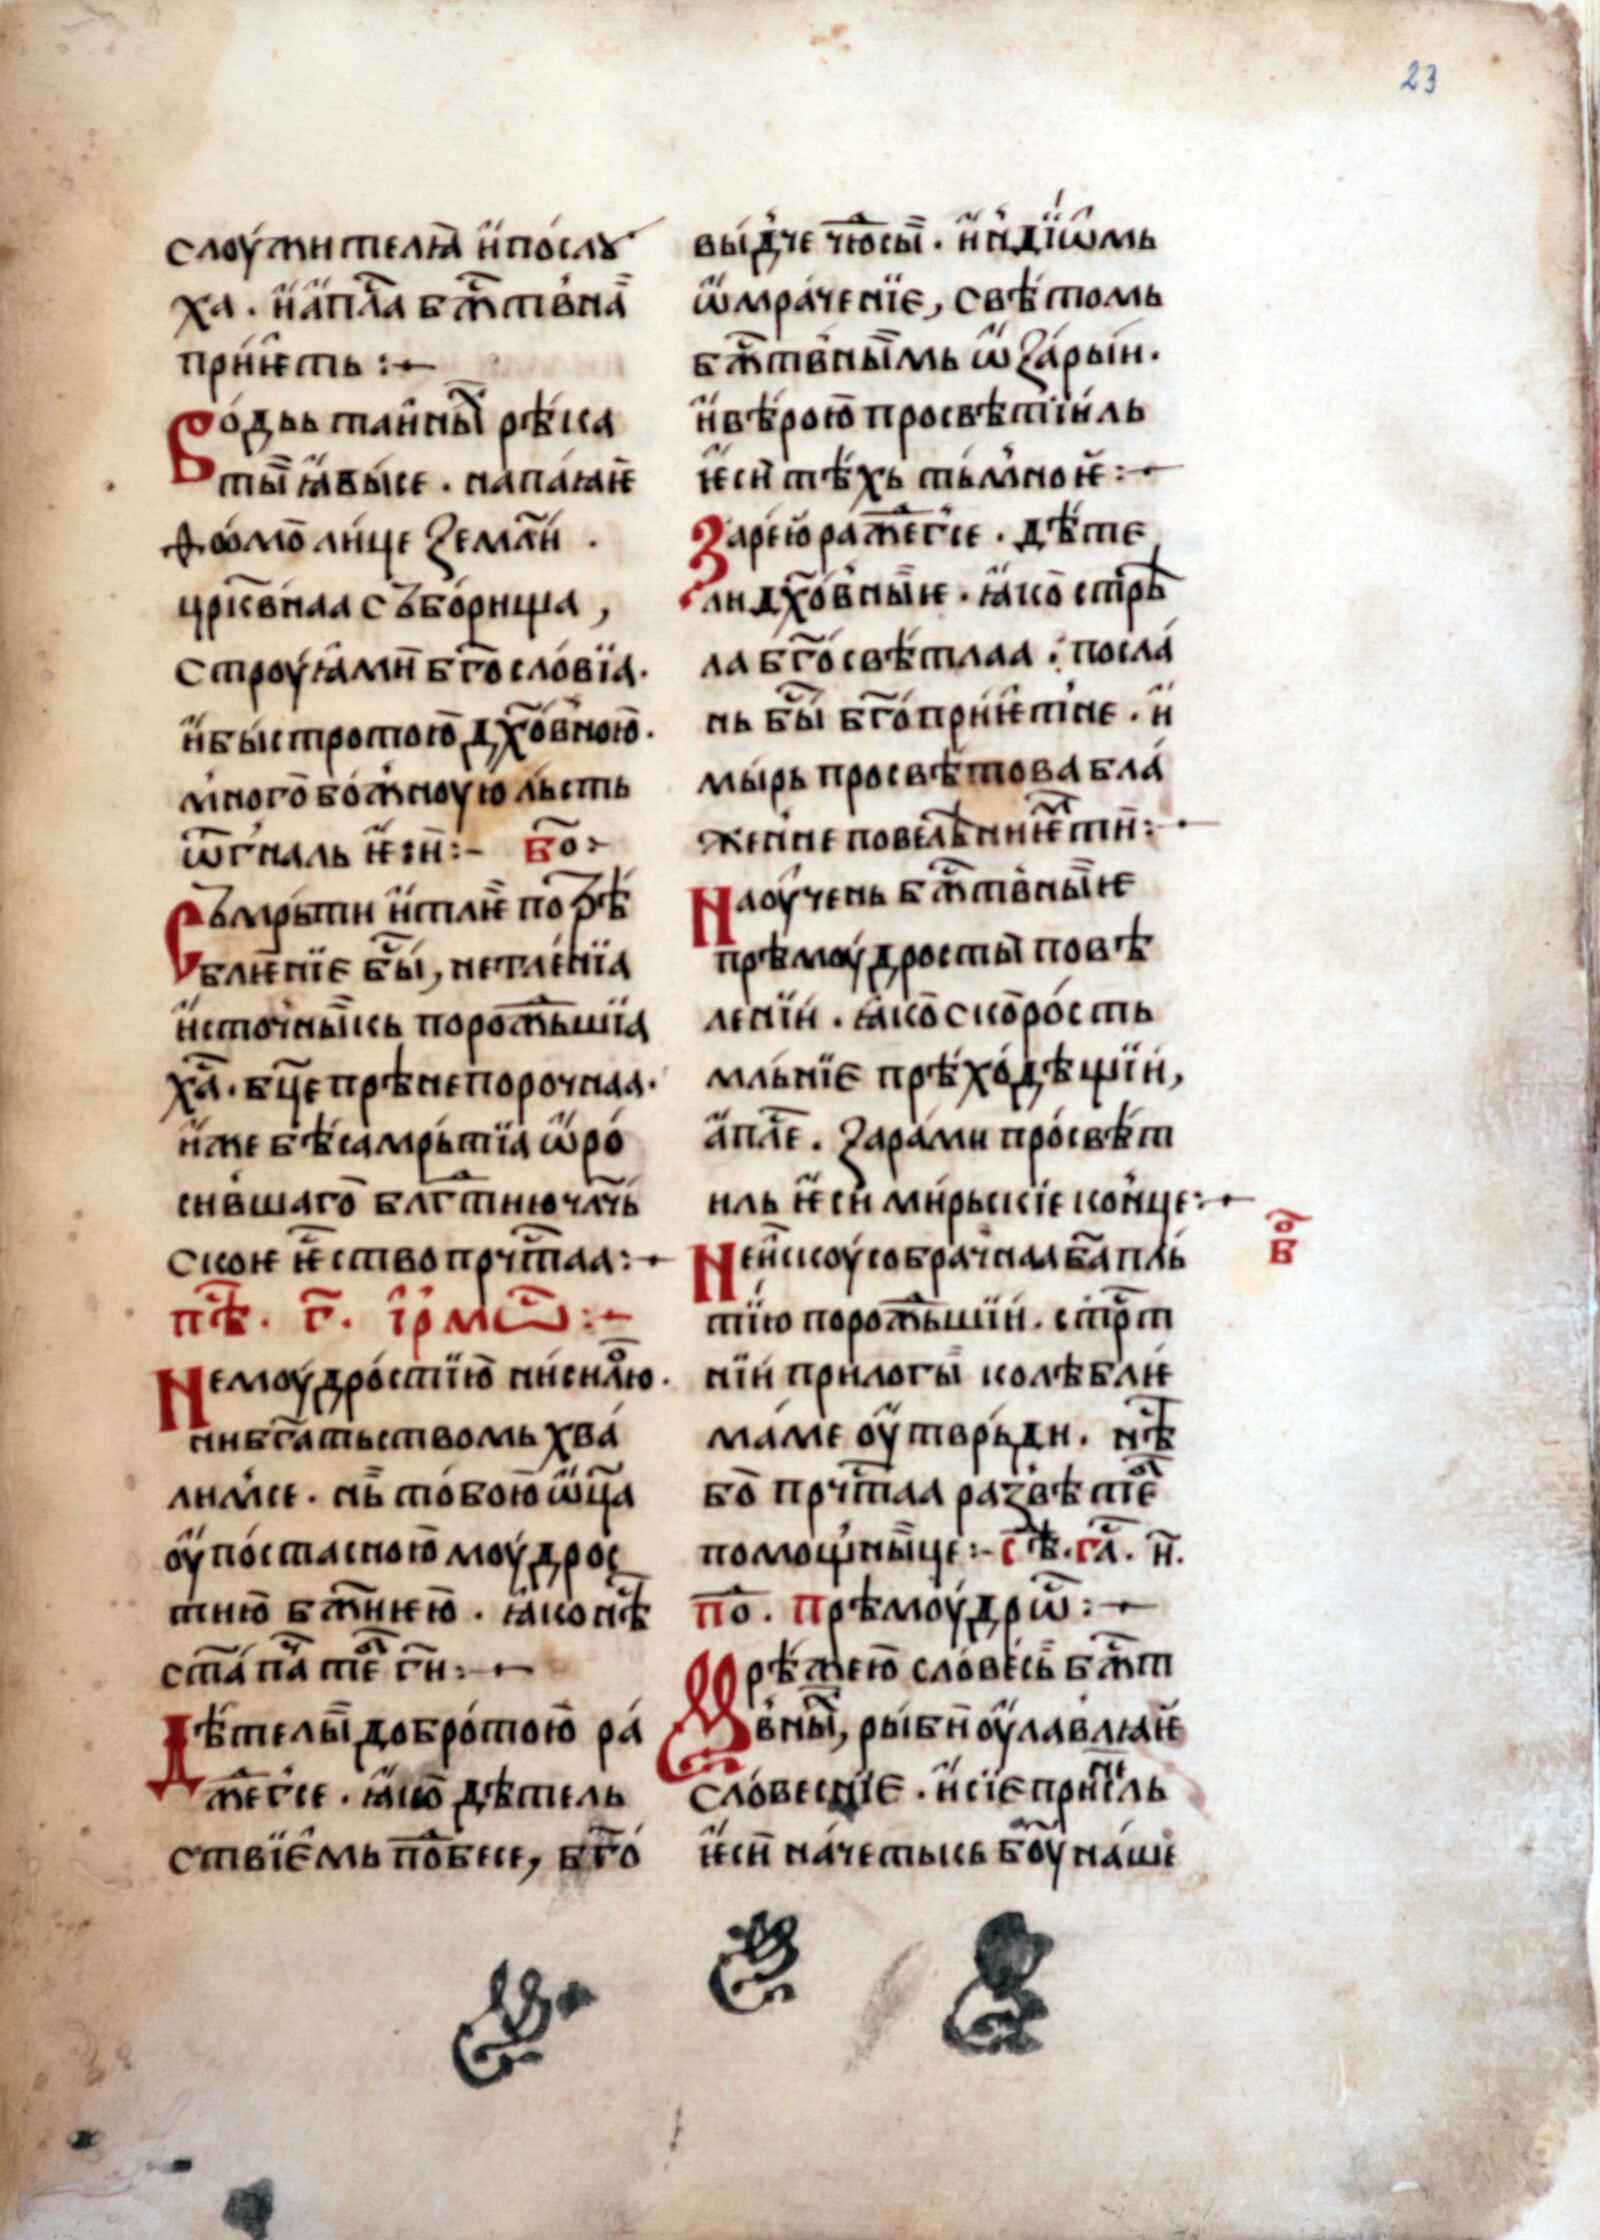 23
слоужителꙗ и послꙋ
ха. и апл҃а бж҃тв́на
приѥть :~
Водьь таины рѣка
ты ꙗвысе. напаꙗѥ
ѳомо лице земли.
црк҃внаа събориша,
строуꙗми бг҃ословїа.
и быстротою дх҃ов́ною.
многобожноую льсть
ѿгналь ѥси:~ бо҃:~
Съмрьти и тлѥ порѣ
блѥнїе бы, нетлѣнїа
источ́никь порож́ьшїа
ха҃. бц҃е прѣнепорочнаа.
иже бѣсамрьтїа ѡро
сившаго благ҃тию чл҃чь
скоѥ ѥство прчⷭ҇таа:~
пѣ҃. г҃. їрмѡ҃:~
Не моудростїю ни силою.
ни бг҃атьствомь хва
лимсе. нь тобою ѡц҃а
оупостасною моудрос
тию бж҃иѥю. ꙗко нѣ
ста҃ па҃ те҃ г҃и:~
Дѣтелы добротою ра
жегсе. ꙗко дѣтель
ствїемь побⷣесе, бг҃о
выдче . и нидїѡмь
ѡмраченїе, свѣтомь
бж҃твнымь ѡзарыи.
и вѣрою просвѣтииль
ѥси тѣхь тьмноѥ:~
Зарею ражегсе. дѣте
ли дх҃ов́ныѥ. ꙗко стрѣ
ла бг҃освѣтлаа: посла
нь бы҃ бг҃оприѥтне. и
мырь просвѣтова бла
жение повелѣнниѥ ти:~
Наоучень бж҃тв́ныѥ
прѣмоудросты повѣ
лении. ꙗко скорость
мльнїе прѣходѣщїи,
апл҃е. зарами просвѣт
иль ѥси мирьскїе конце:~
Неискоусобрачнаа ба҃ пль
бо҃
тїю порож́ьшїи. стрⷭ҇т
нїи прилогы колѣблѥ
маме оутврьди. нѣ
бо прчⷭ҇таа развѣ те҃
помощ́нице:~ сѣ҃. гл҃. и҃.
по҃. Прѣмоудрѡ҃:~
Мрѣжею словесь бж҃т
в́ны, рыби оулавлꙗѥ
словеснїе. и сїе приⷩ҇сль
ѥси начетькь бо҃у наше